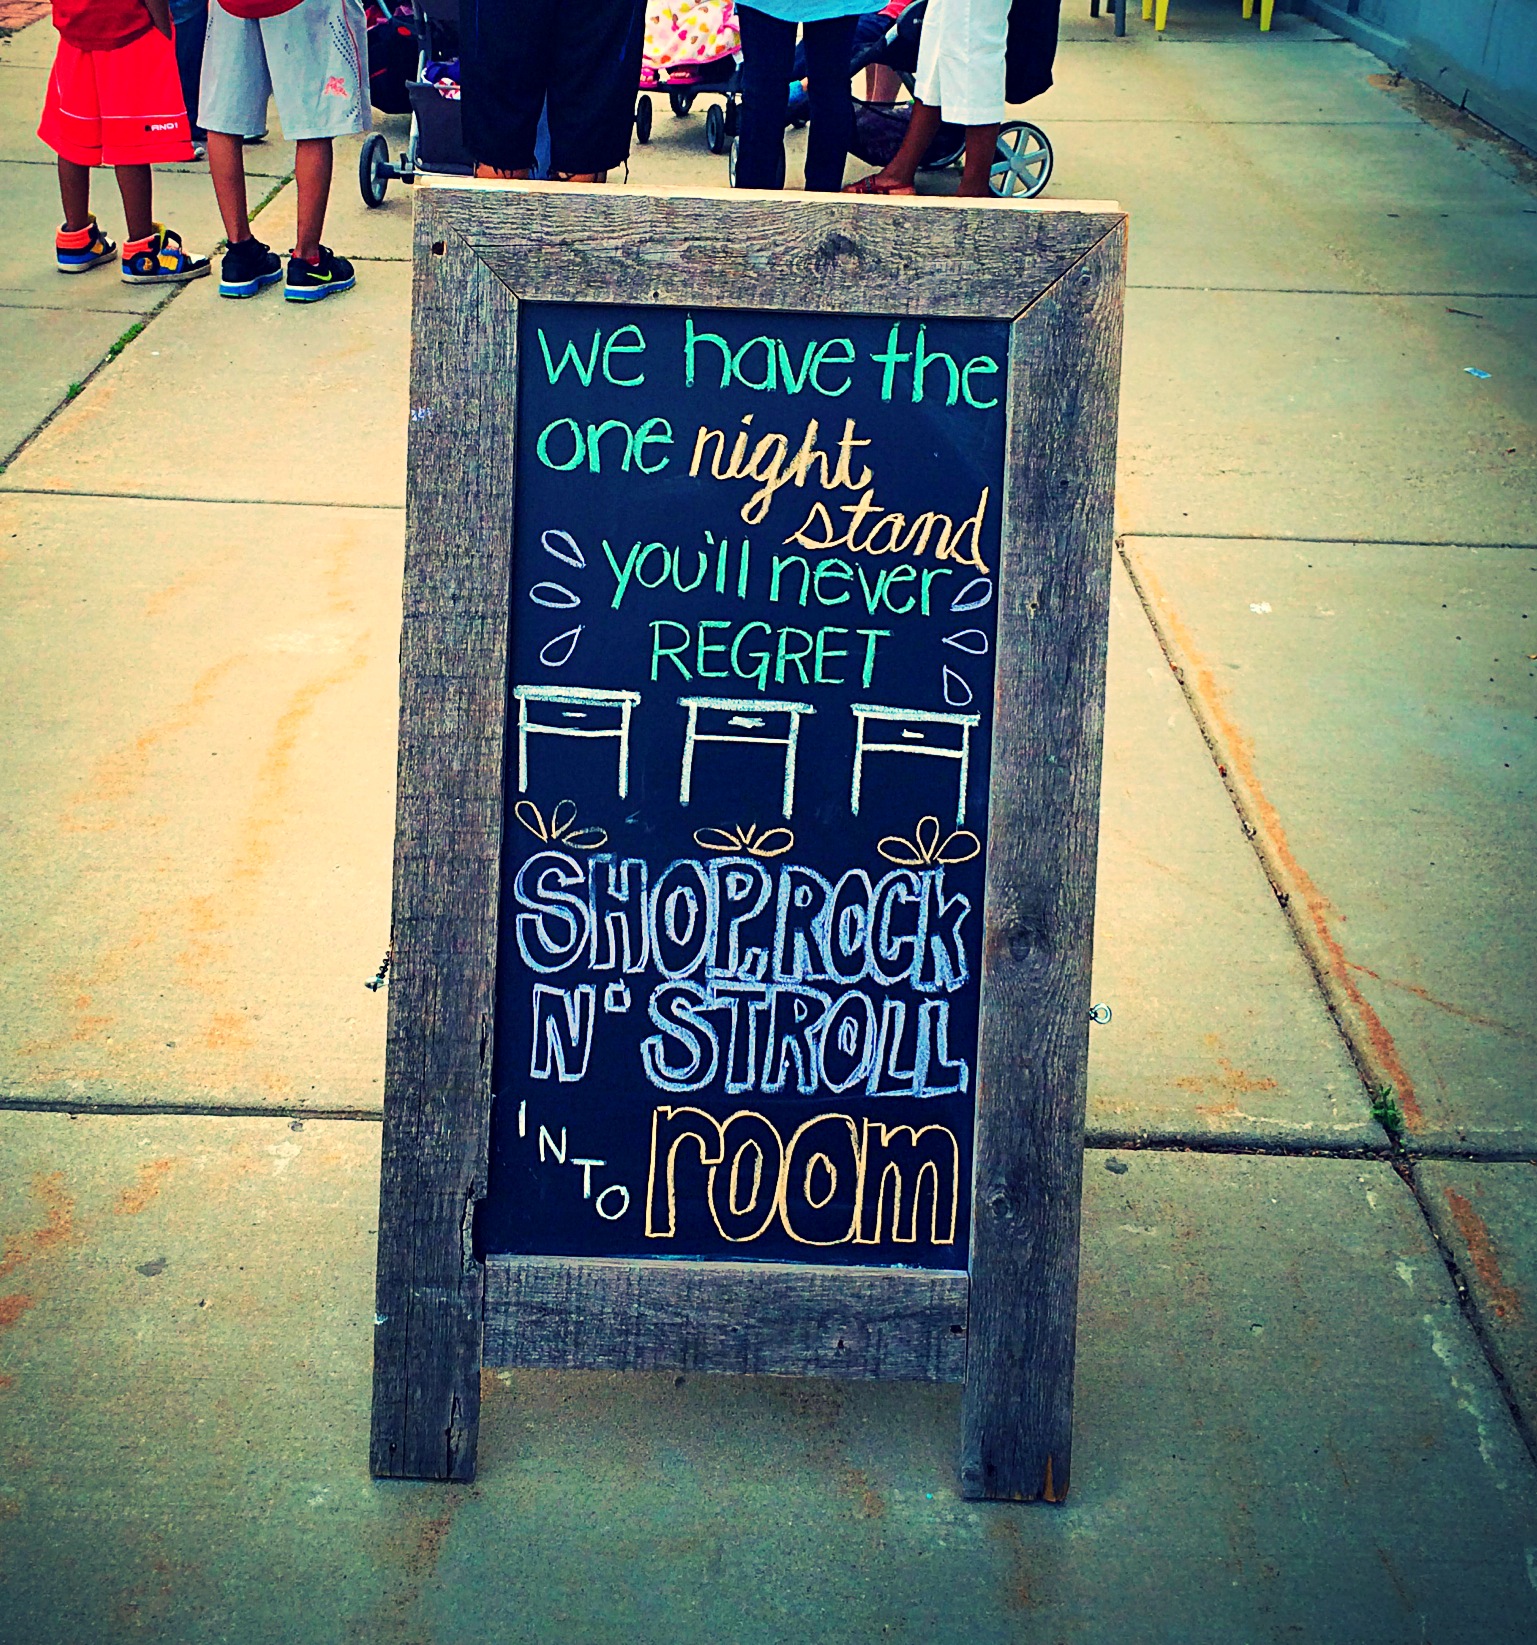 we have the
one night
stand
you'll never
REGRET
SHOP, ROCK
N' STROLL
INTO room
AND1